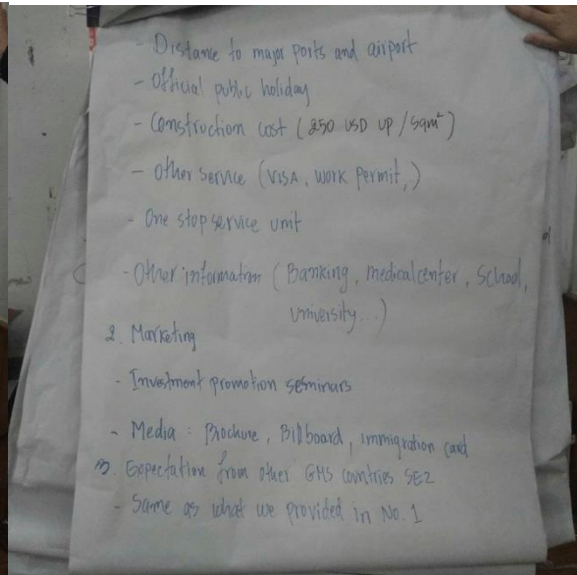 - Distance to major ports and airport
- Official public holiday
- Construction cost (250 USD UP / Sqm²)
- Other service (VISA, work permit,)
- One stop service unit
- Other information (Banking, medical center, School,
university...)
2. Marketing
- Investment promotion seminars
- Media : Brochure, Billboard, immigration card
3. Expectation from other GMS countries SEZ
- Same as what we provided in No. 1